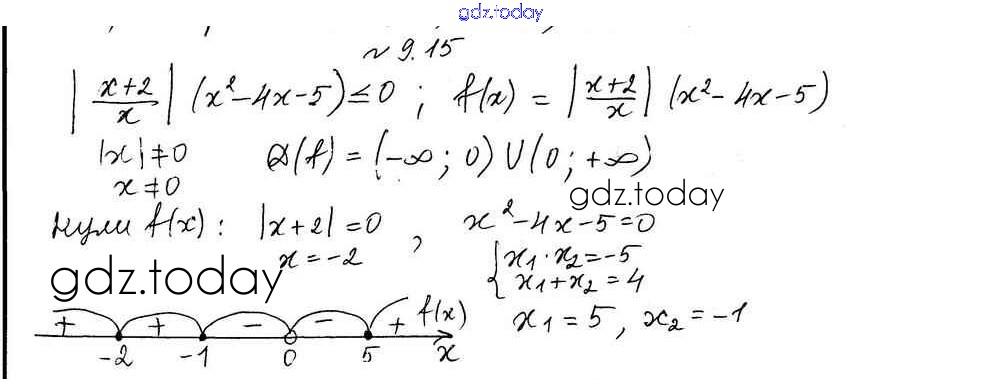 gdz.today
№ 9.15
|x+2/x| (x²-4x-5) ≤ 0 ; f(x) = |x+2/x| (x²-4x-5)
|x| ≠ 0 D(f) = (-∞; 0) U (0; +∞)
x ≠ 0
gdz.today
Нули f(x): |x+2| = 0 , x²-4x-5=0
x = -2
{ x₁·x₂ = -5
x₁+x₂ = 4
gdz.today
x₁ = 5, x₂ = -1
+ + - - + f(x)
-2 -1 0 5 x